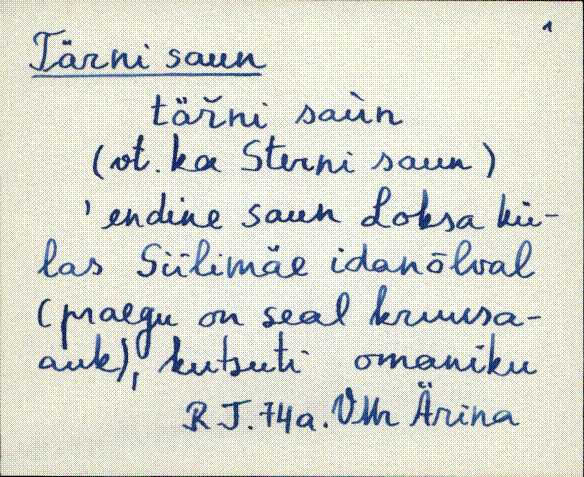 1
Tärni saun
tär̆ni saùn
(vt. ka Sterni saun)
' endine saun Loksa kü-
las Siilimäe idanõlval
(praegu on seal kruusa-
auk), kutsuti omaniku
R J. 74a. VMr Ärina